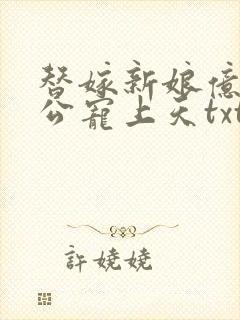 替嫁新娘億
公寵上天txt
許嬈嬈